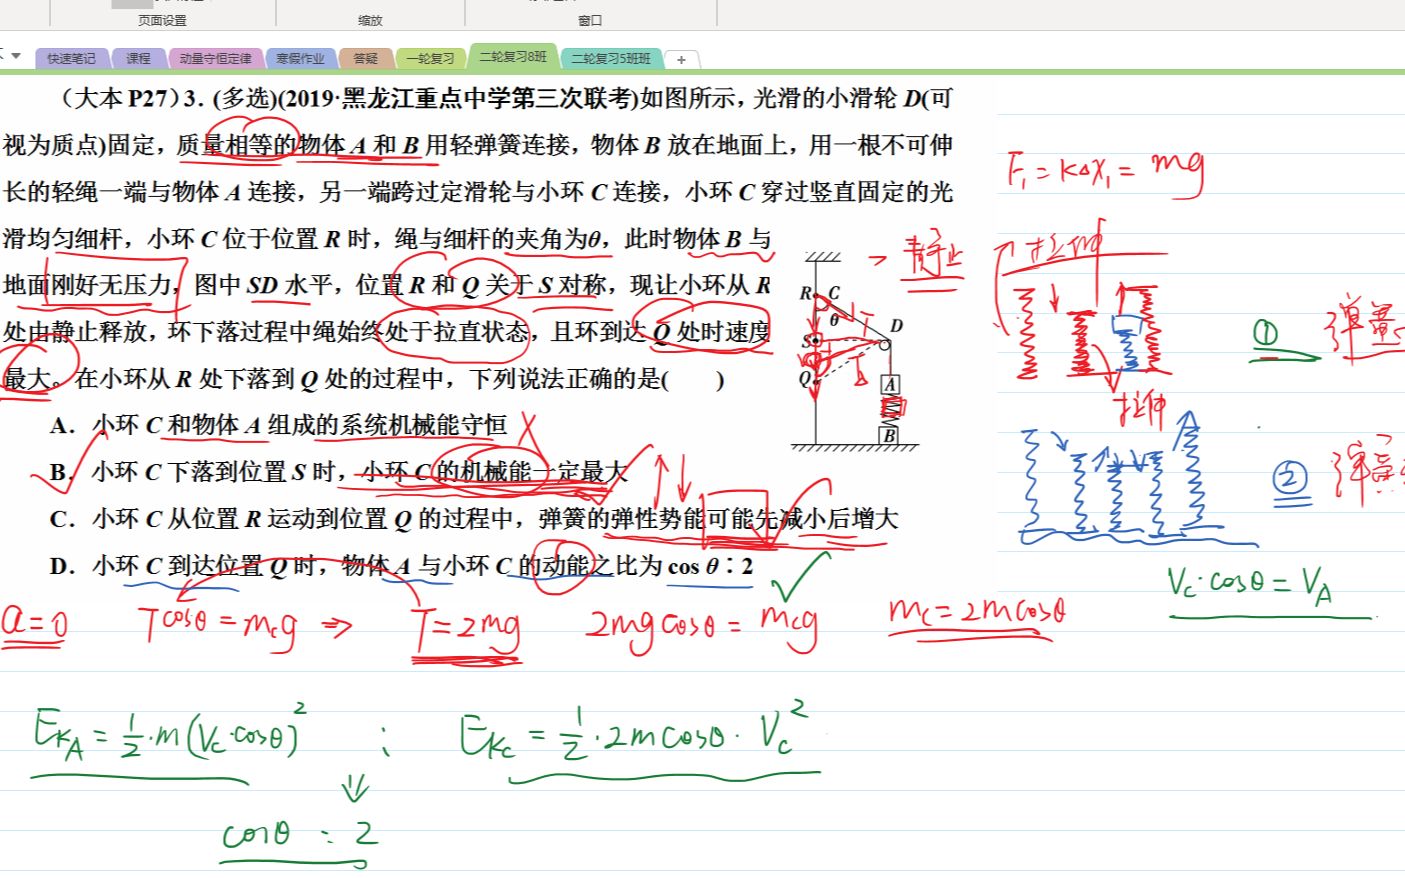 页面设置 缩放 窗口
快速笔记 课程 动量守恒定律 寒假作业 答疑 一轮复习 二轮复习8班 二轮复习5班班 +
（大本P27）3．(多选)(2019·黑龙江重点中学第三次联考)如图所示，光滑的小滑轮 D(可
视为质点)固定，质量相等的物体 A 和 B 用轻弹簧连接，物体 B 放在地面上，用一根不可伸
长的轻绳一端与物体 A 连接，另一端跨过定滑轮与小环 C 连接，小环 C 穿过竖直固定的光
滑均匀细杆，小环 C 位于位置 R 时，绳与细杆的夹角为θ，此时物体 B 与
地面刚好无压力，图中 SD 水平，位置 R 和 Q 关于 S 对称，现让小环从 R
处由静止释放，环下落过程中绳始终处于拉直状态，且环到达 Q 处时速度
最大。在小环从 R 处下落到 Q 处的过程中，下列说法正确的是(　　)
A．小环 C 和物体 A 组成的系统机械能守恒
B．小环 C 下落到位置 S 时，小环 C 的机械能一定最大
C．小环 C 从位置 R 运动到位置 Q 的过程中，弹簧的弹性势能可能先减小后增大
D．小环 C 到达位置 Q 时，物体 A 与小环 C 的动能之比为 cos θ∶2
R C
θ
D
S
Q
A
B
静止
F₁ = kΔx₁ = mg
拉伸
拉伸
① 弹簧
② 弹簧
Vc·cosθ = VA
a=0 Tcosθ = mcg ⇒ T=2mg 2mgcosθ = mcg mc=2mcosθ
EKA = ½·m(Vc·cosθ)² : EKc = ½·2mcosθ·Vc²
⇓
cosθ : 2